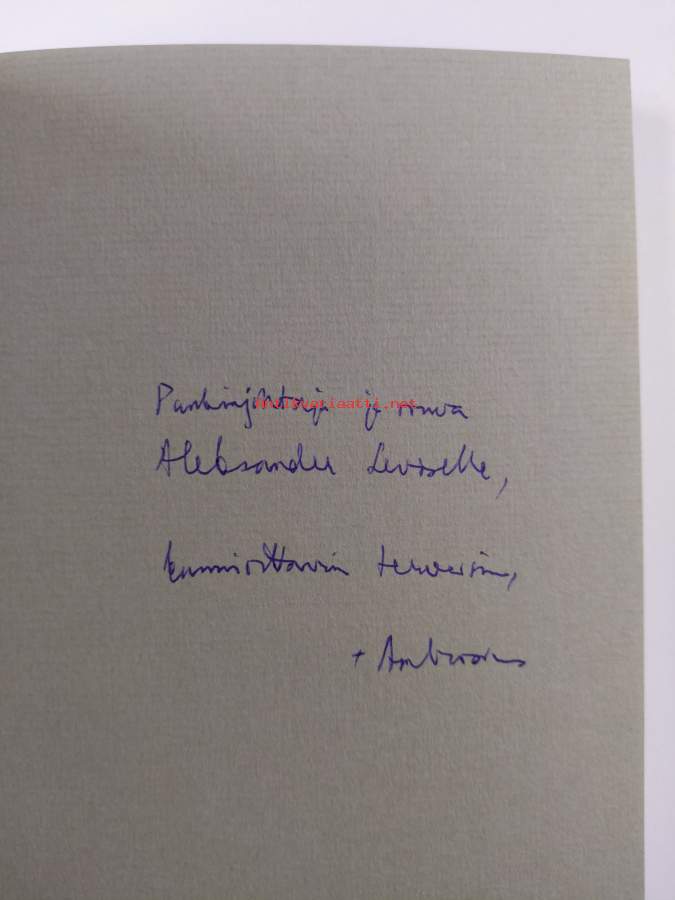 Pankinjohtaja ja rouva
antikvariaatti.net
Aleksander Leviselle,
kunnioittavin terveisin,
+ Ambrosius